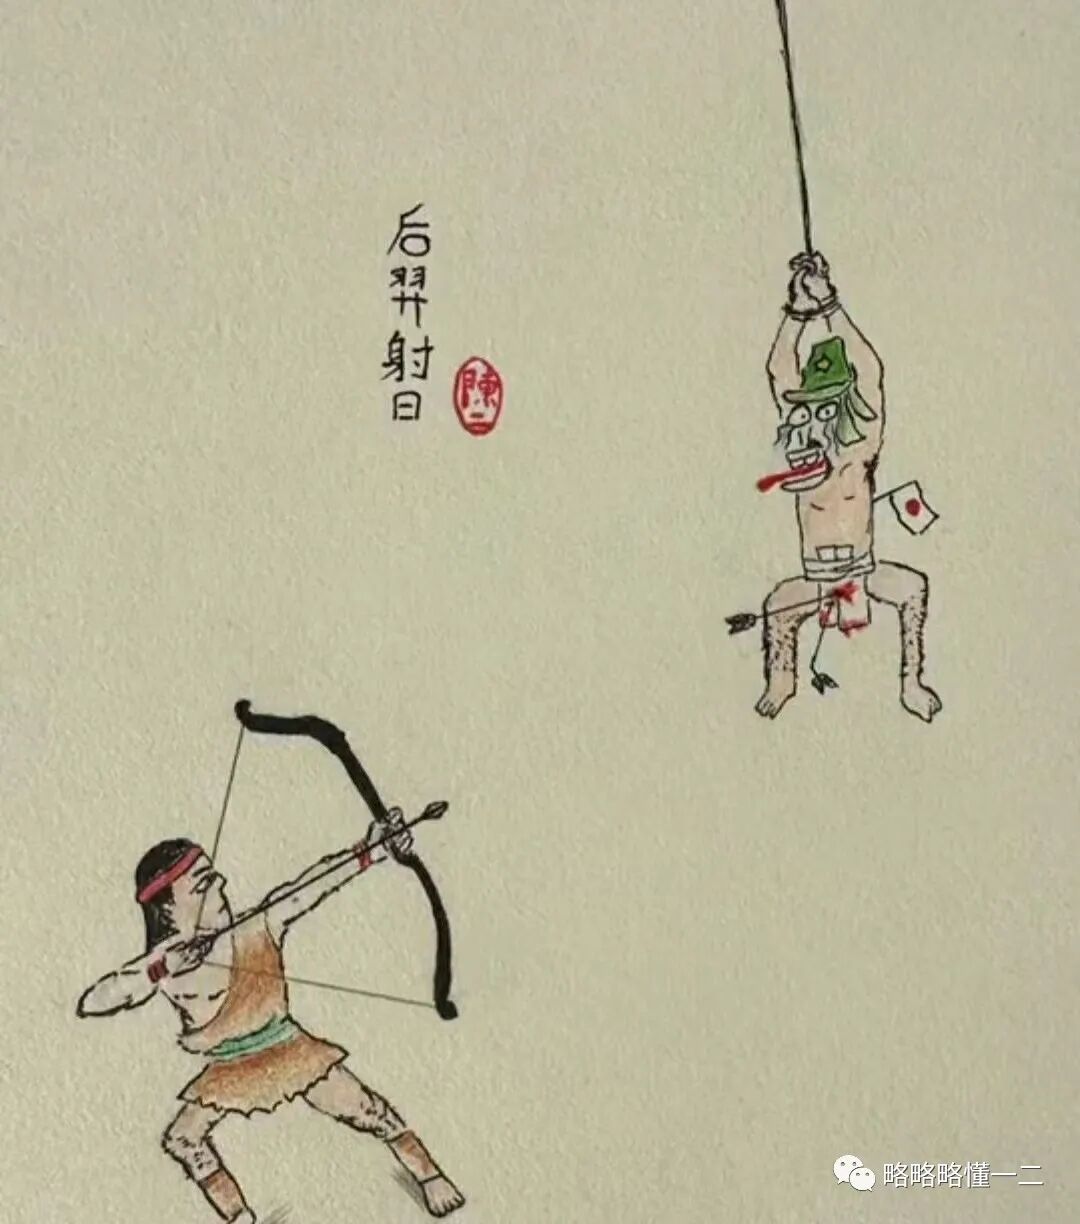 后羿射日
陳二
略略略懂一二